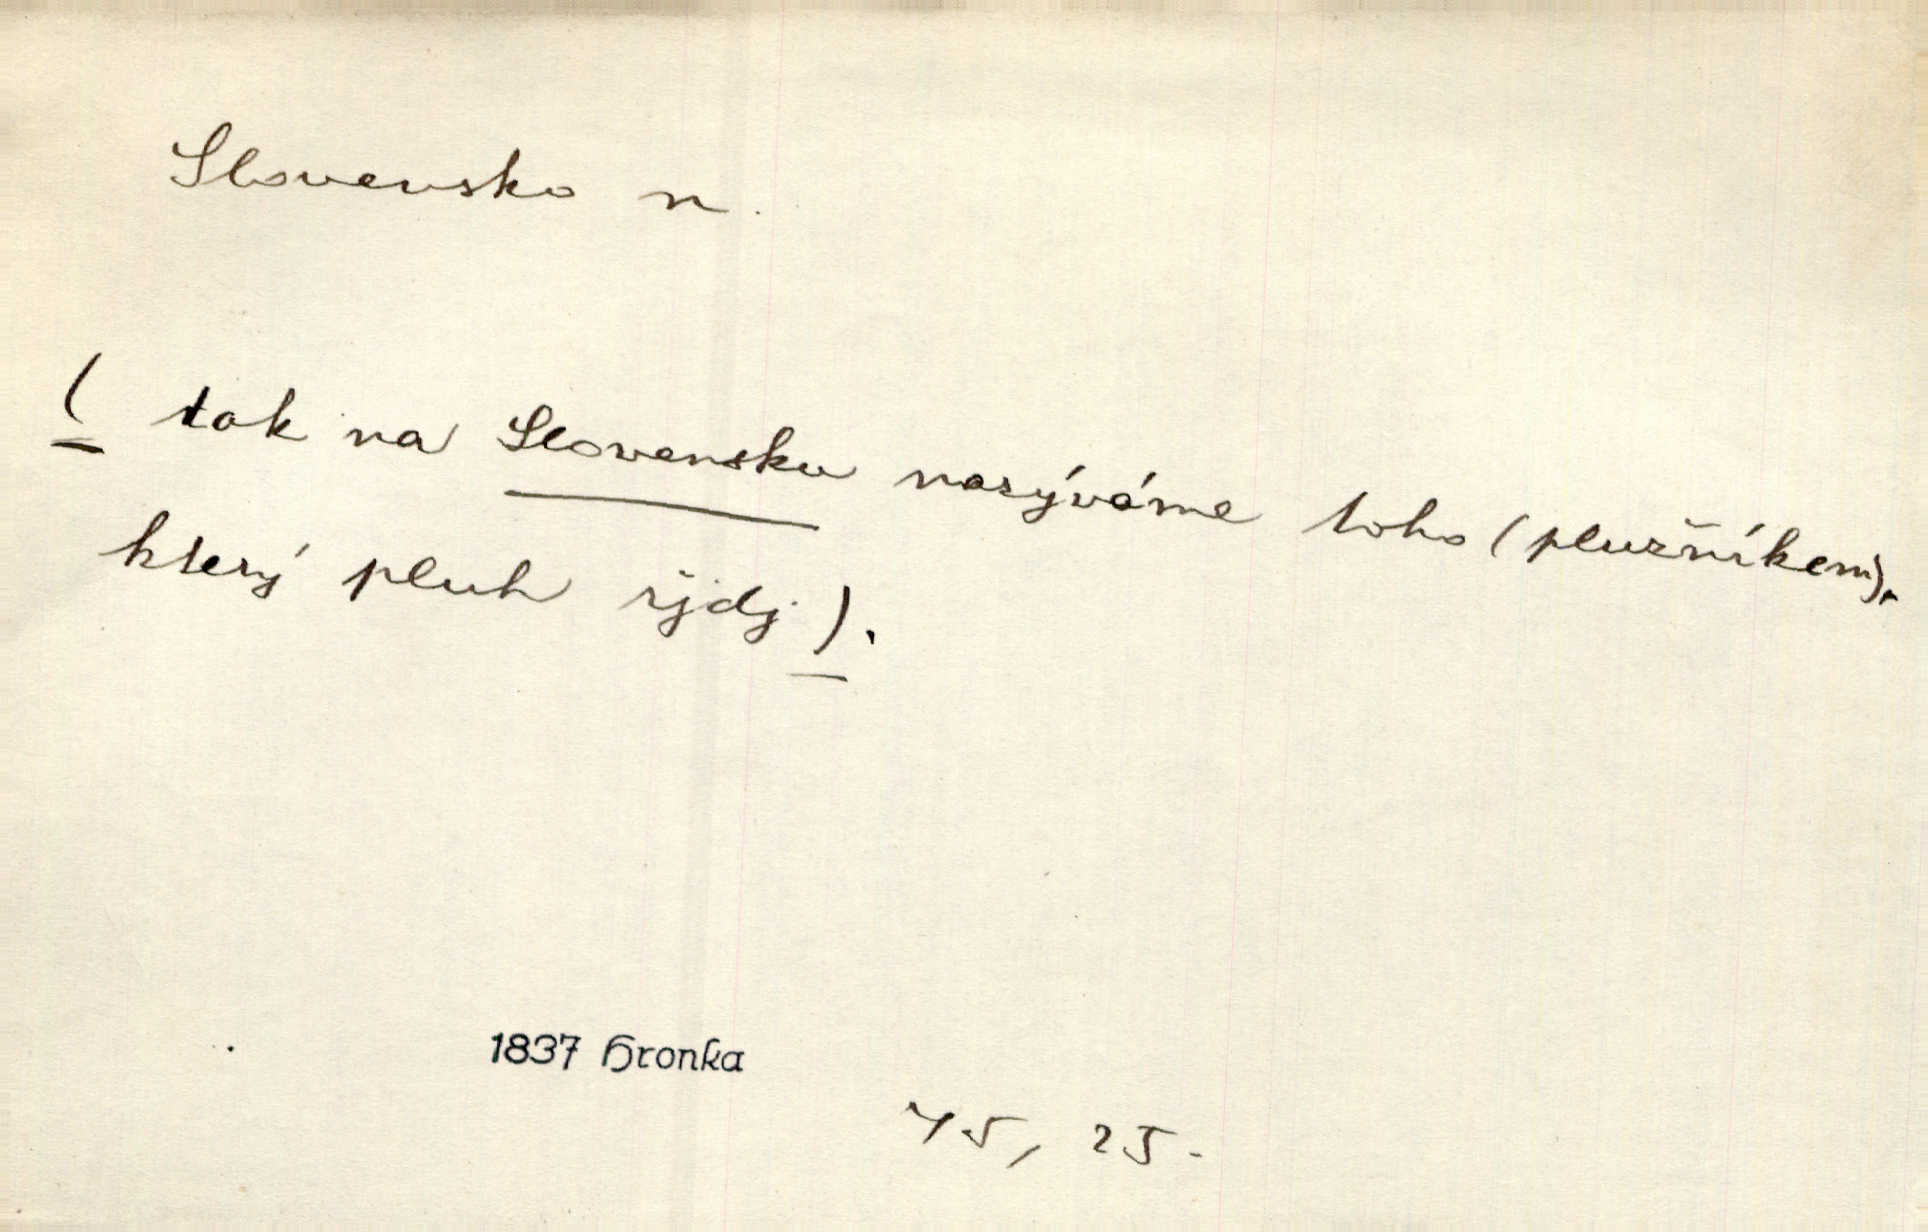 Slovensko n.
( tak na Slovensku nazýváme toho (plužníkem),
který pluh řjdj ).
1837 Hronka
75, 25.